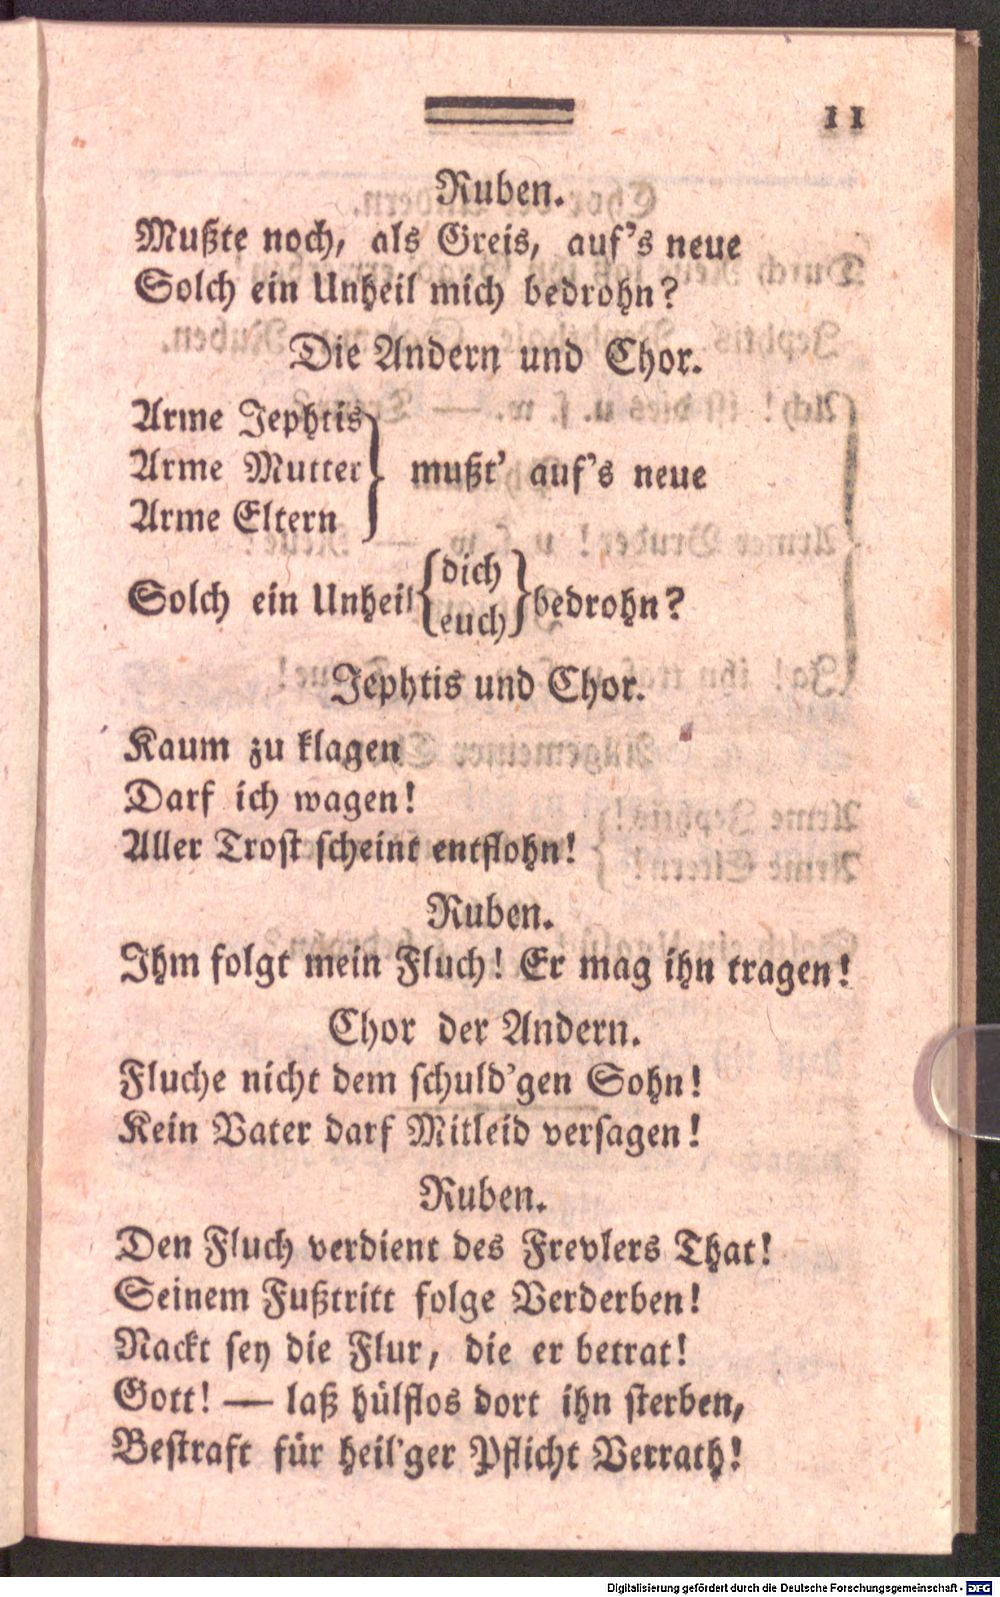 11
Ruben.
Mußte noch, als Greis, auf's neue
Solch ein Unheil mich bedrohn?
Die Andern und Chor.
Arme Jephtis
Arme Mutter } mußt' auf's neue
Arme Eltern
Solch ein Unheil { dich euch } bedrohn?
Jephtis und Chor.
Kaum zu klagen
Darf ich wagen!
Aller Trost scheint entflohn!
Ruben.
Ihm folgt mein Fluch! Er mag ihn tragen!
Chor der Andern.
Fluche nicht dem schuld'gen Sohn!
Kein Vater darf Mitleid versagen!
Ruben.
Den Fluch verdient des Frevlers That!
Seinem Fußtritt folge Verderben!
Nackt sey die Flur, die er betrat!
Gott! — laß hülflos dort ihn sterben,
Bestraft für heil'ger Pflicht Verrath!
Digitalisierung gefördert durch die Deutsche Forschungsgemeinschaft - DFG